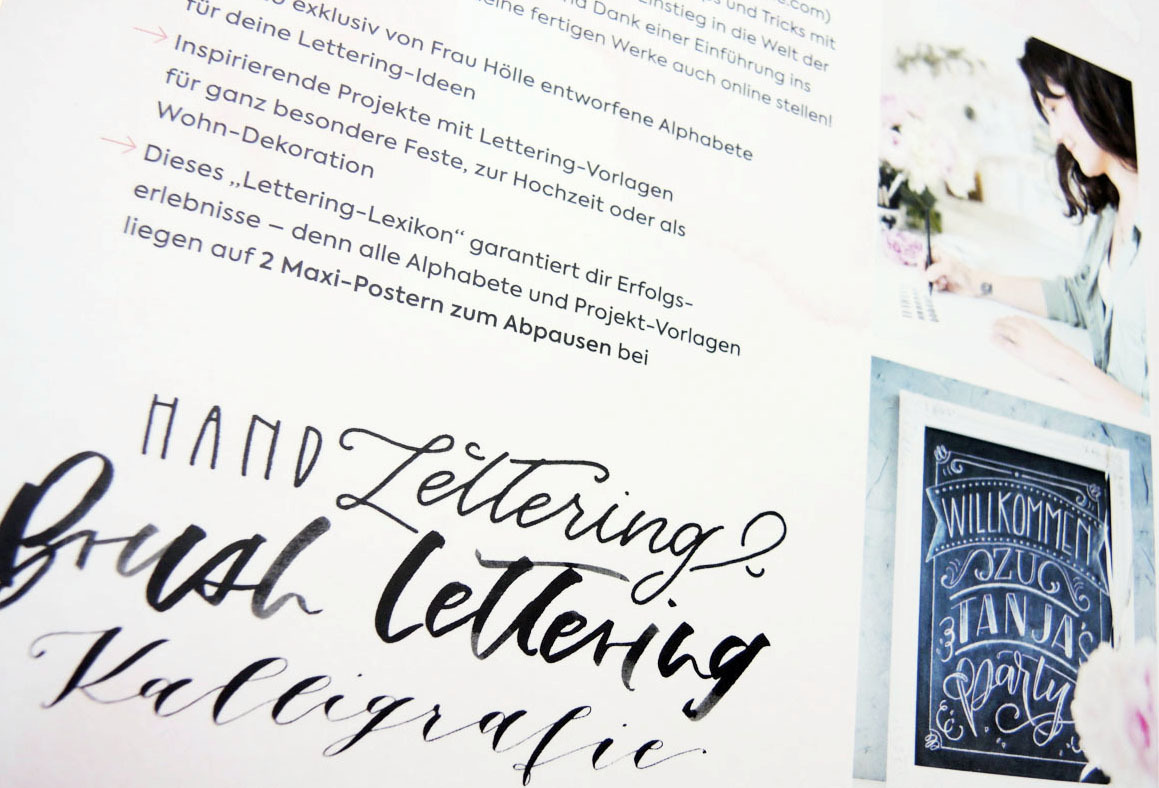 e.com)
und Tricks mit
Einstieg in die Welt der
Dank einer Einführung ins
eine fertigen Werke auch online stellen!
exklusiv von Frau Hölle entworfene Alphabete
für deine Lettering-Ideen
Inspirierende Projekte mit Lettering-Vorlagen
für ganz besondere Feste, zur Hochzeit oder als
Wohn-Dekoration
Dieses „Lettering-Lexikon“ garantiert dir Erfolgs-
erlebnisse – denn alle Alphabete und Projekt-Vorlagen
liegen auf 2 Maxi-Postern zum Abpausen bei
HAND Lettering?
Brush lettering
Kalligrafie
WILLKOMMEN
ZU
TANJA'S
Party